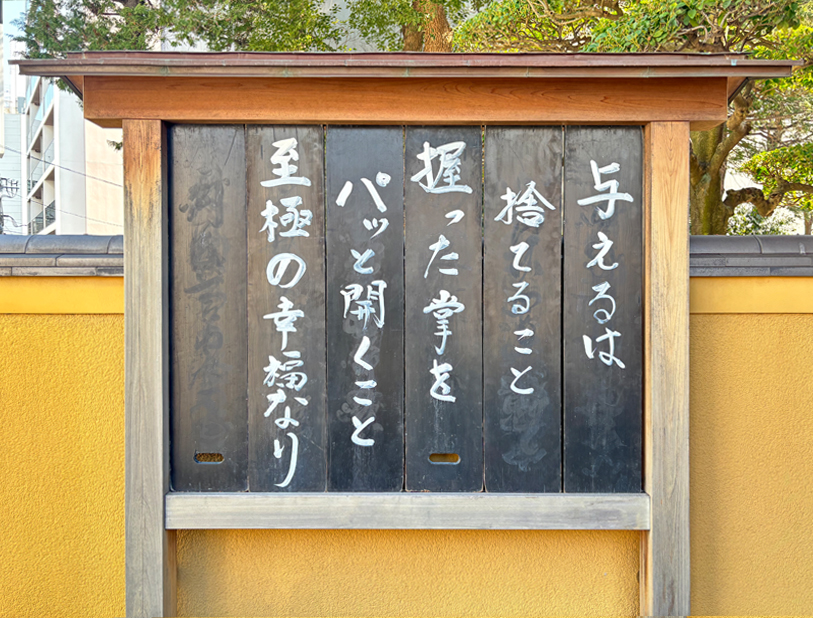 与えるは
捨てること
握った掌を
パッと開くこと
至極の幸福なり